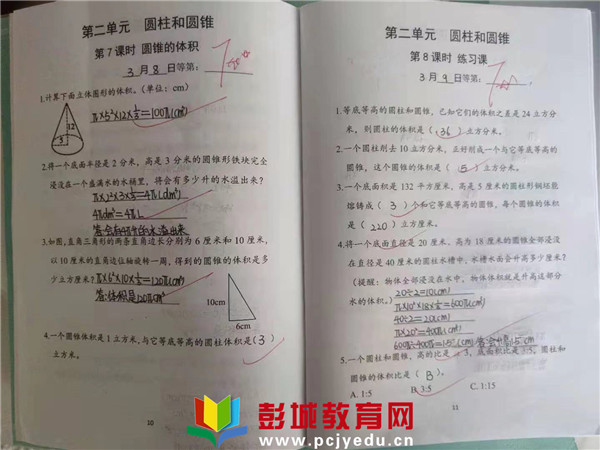 第二单元 圆柱和圆锥
第7课时 圆锥的体积
3月8日等第:
1.计算下面立体图形的体积。(单位: cm)
12
3
π×5²×12×⅓=100π(cm³)
2.将一个底面半径是2分米,高是3分米的圆锥形铁块完全
浸没在一个盛满水的水桶里,将会有多少升的水溢出来?
π×2²×3×⅓=4π(dm³)
4πdm³=4πL
答:会有4π升的水溢出来
3.如图,直角三角形的两条直角边长分别为6厘米和10厘米,
以10厘米的直角边位轴旋转一周,得到的圆锥的体积是多
少立方厘米?
π×6²×10×⅓=120π(cm³)
答:体积是120πcm³
10cm
6cm
4.一个圆锥体积是1立方米,与它等底等高的圆柱体积是(3)
立方米。
10
第二单元 圆柱和圆锥
第8课时 练习课
3月9日等第:
1.等底等高的圆柱和圆锥,已知它们的体积之差是24立方分
米,则圆柱的体积是(36)立方分米。
2.一个圆柱削去10立方分米,正好削成一个与它等底等高的
圆锥,这个圆锥的体积是(5)立方分米。
3.一个底面积是132平方厘米,高是5厘米的圆柱形钢坯能
熔铸成(3)个和它等底等高的圆锥,每个圆锥的体积
是(220)立方厘米。
4.将一个底面直径是20厘米,高为18厘米的圆锥全部浸没
在直径是40厘米的圆柱水槽中,水槽水面会升高多少厘米?
(提醒:物体全部浸没在水中,物体体积就是升高这部分
水的体积。)
20÷2=10(cm)
π×10²×18×⅓=600π(cm³)
40÷2=20(cm)
π×20²=400π(cm²)
600π÷400π=1.5(cm) 答:会升高1.5cm
5.一个圆柱和圆锥,高的比是 3,底面积比是3:5,圆柱和
圆锥的体积比是(B)。
A. 1:5 B. 3:5 C. 1:15
11
彭城教育网
www.pcjyedu.cn